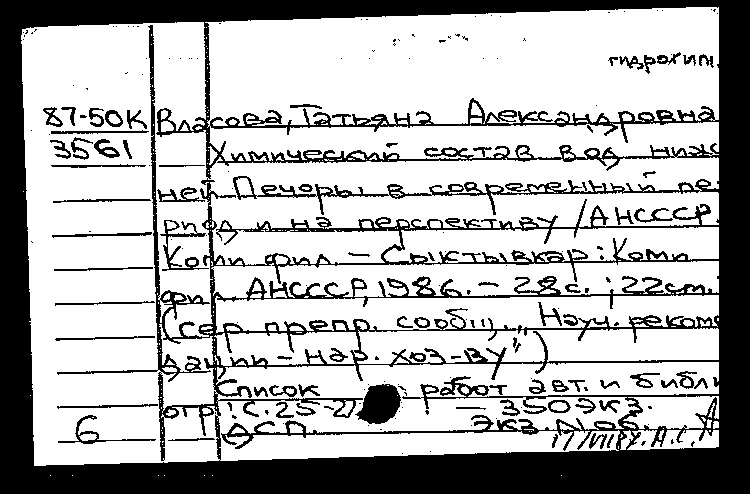 гидрохим.
87-50К Власова, Татьяна Александровна
3561 Химический состав вод ниж-
ней Печеры в современный пе-
риод и на перспективу / АН СССР.
Коми фил. – Сыктывкар: Коми
фил. АН СССР, 1986. – 28 с.; 22 см. –
(Сер. препр. сообщ. „Науч. рекомен-
дации – нар. хоз-ву")
Список работ авт. и библи
огр.: С. 25-27 – 350 экз.
6 ДСП. Экз. №06.